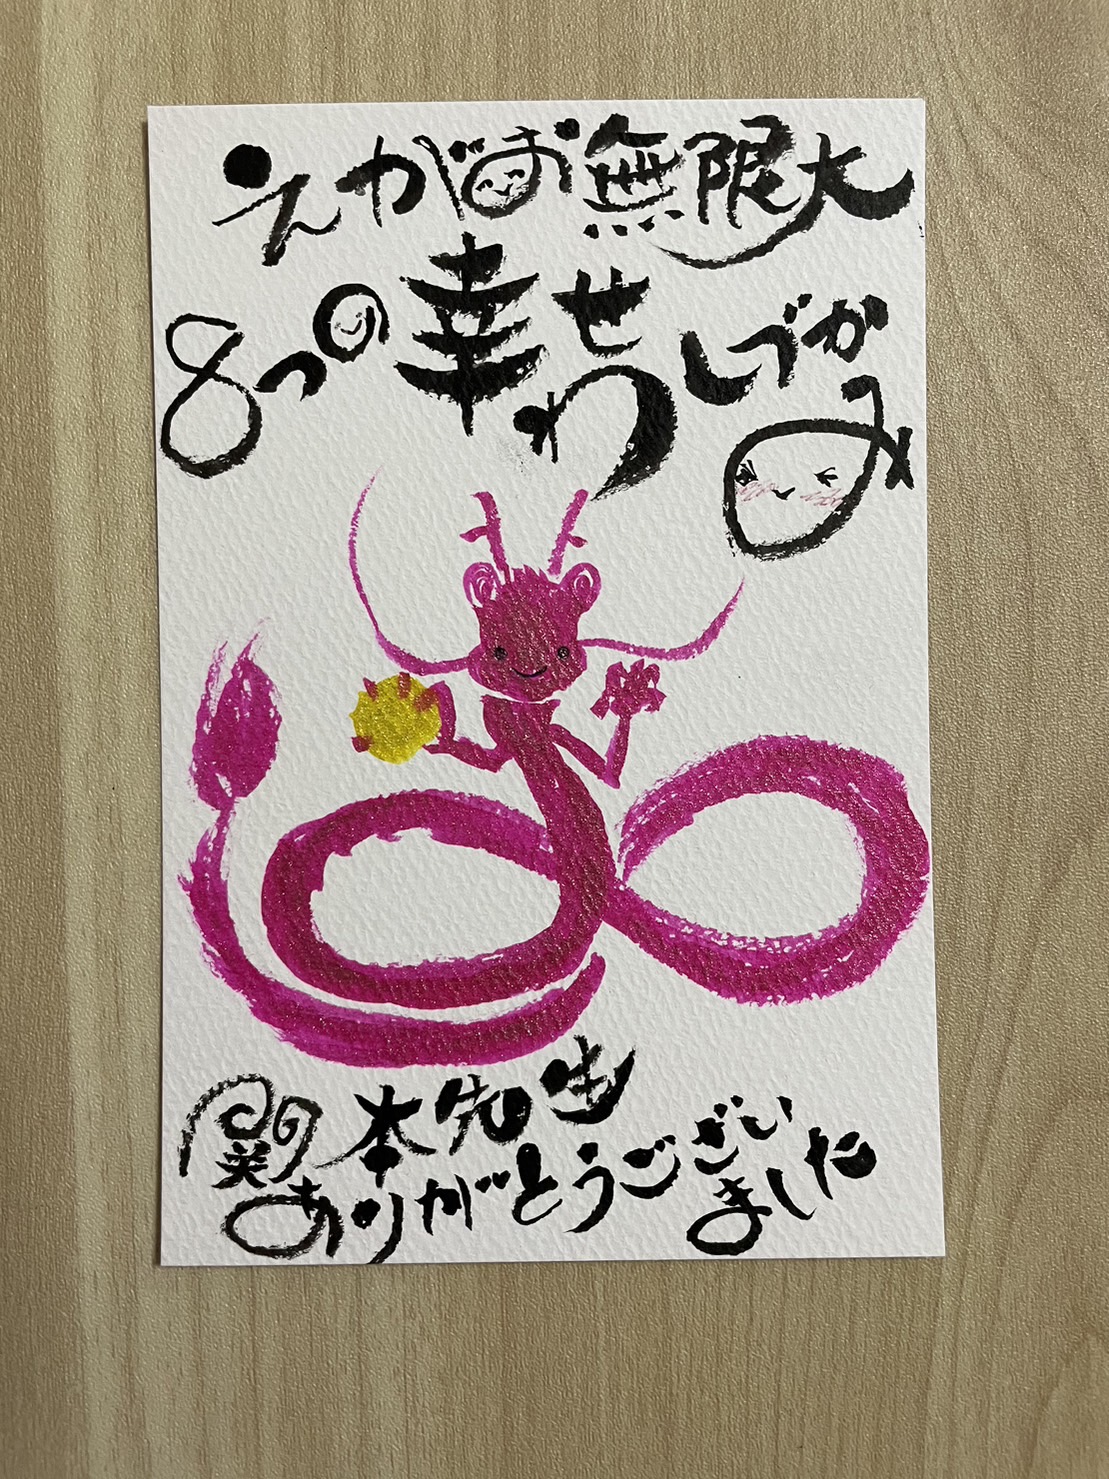 えがお無限大
8つの幸せわしづかみ
関本先生
ありがとうございました